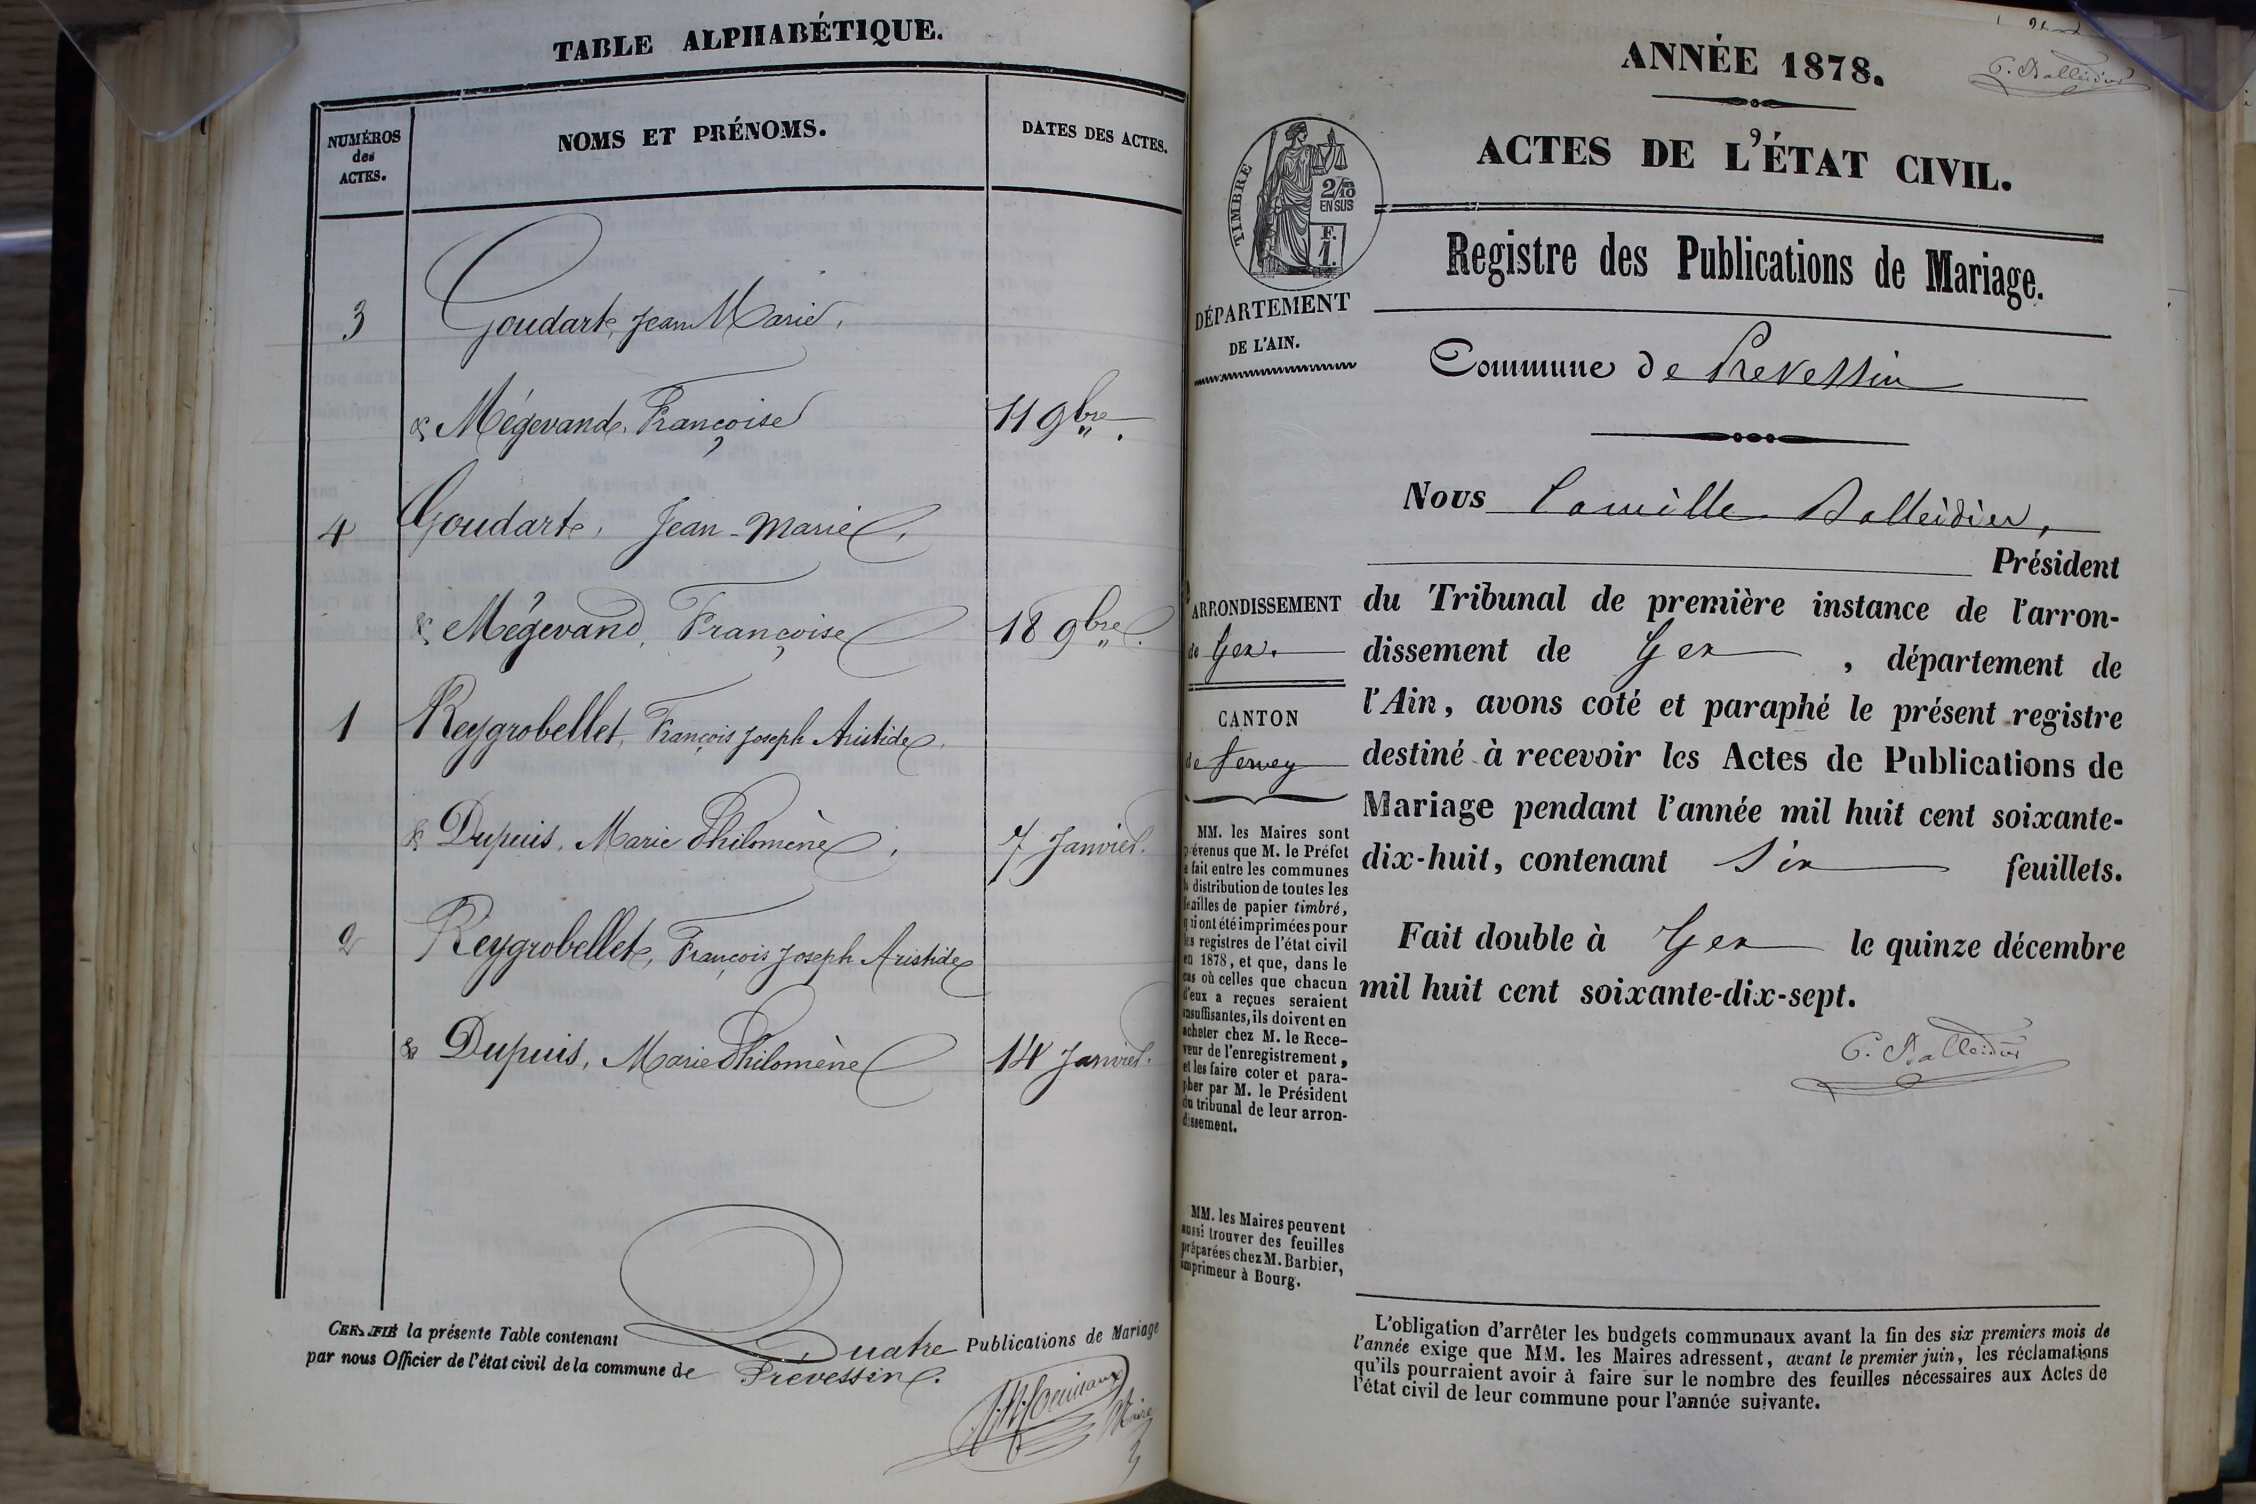 TABLE ALPHABÉTIQUE.
NUMÉROS
des
ACTES.
NOMS ET PRÉNOMS.
DATES DES ACTES.
3 Goudart, Jean Marie,
& Mégevand, Françoise 11 9bre.
4 Goudart, Jean-Marie,
& Mégevand, Françoise 18 9bre.
1 Reygrobellet, François Joseph Aristide,
& Dupuis, Marie Philomène, 7 Janvier.
2 Reygrobellet, François Joseph Aristide
& Dupuis, Marie Philomène 14 Janvier.
CERTIFIÉ la présente Table contenant Quatre Publications de Mariage
par nous Officier de l'état civil de la commune de Prévessin.
Maire
ANNÉE 1878.
C. Balleidier
ACTES DE L'ÉTAT CIVIL.
TIMBRE
2/10
EN SUS
F.
1.
Registre des Publications de Mariage.
DÉPARTEMENT
DE L'AIN.
Commune de Prevessin
Nous Camille Balleidier,
Président
du Tribunal de première instance de l'arron-
dissement de Gex, département de
l'Ain, avons coté et paraphé le présent registre
destiné à recevoir les Actes de Publications de
Mariage pendant l'année mil huit cent soixante-
dix-huit, contenant Six feuillets.
Fait double à Gex le quinze décembre
mil huit cent soixante-dix-sept.
C. Balleidier
ARRONDISSEMENT
de Gex.
CANTON
de Ferney
MM. les Maires sont
prévenus que M. le Préfet
a fait entre les communes
la distribution de toutes les
feuilles de papier timbré,
qui ont été imprimées pour
les registres de l'état civil
en 1878, et que, dans le
cas où celles que chacun
d'eux a reçues seraient
insuffisantes, ils doivent en
acheter chez M. le Rece-
veur de l'enregistrement,
et les faire coter et para-
pher par M. le Président
du tribunal de leur arron-
dissement.
MM. les Maires peuvent
aussi trouver des feuilles
préparées chez M. Barbier,
imprimeur à Bourg.
L'obligation d'arrêter les budgets communaux avant la fin des six premiers mois de
l'année exige que MM. les Maires adressent, avant le premier juin, les réclamations
qu'ils pourraient avoir à faire sur le nombre des feuilles nécessaires aux Actes de
l'état civil de leur commune pour l'année suivante.